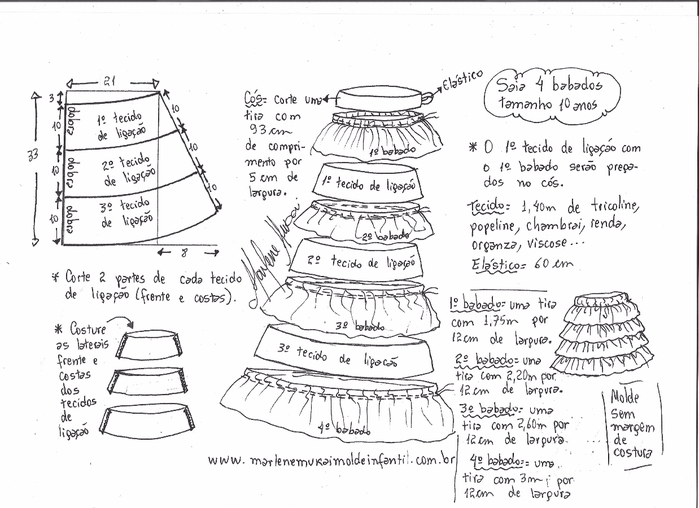 21
3
10
10
10
33
10
10
10
8
dobra
dobra
dobra
1º tecido
de ligação
2º tecido
de ligação
3º tecido
de ligação
* Corte 2 partes de cada tecido
de ligação (frente e costas).
* Costure
as laterais
frente e
costas
dos
tecidos
de
ligação
Cós: Corte uma
tira com
93 cm
de compri-
mento por
5 cm de
largura.
Elástico
1º babado
1º tecido de ligação
2º babado
2º tecido de ligação
3º babado
3º tecido de ligação
4º babado
Marlene Mukai
www.marlenemukaimoldeinfantil.com.br
Saia 4 babados
tamanho 10 anos
* O 1º tecido de ligação com
o 1º babado serão prega-
dos no cós.
Tecido: 1,40m de tricoline,
popeline, chambrai, renda,
organza, viscose...
Elástico = 60 cm
1º babado: uma tira
com 1,75m por
12cm de largura.
2º babado: uma
tira com 2,20m por
12cm de largura.
3º babado: uma
tira com 2,60m por
12cm de largura.
4º babado: uma
tira com 3m por
12cm de largura
Molde
sem
margem
de
costura